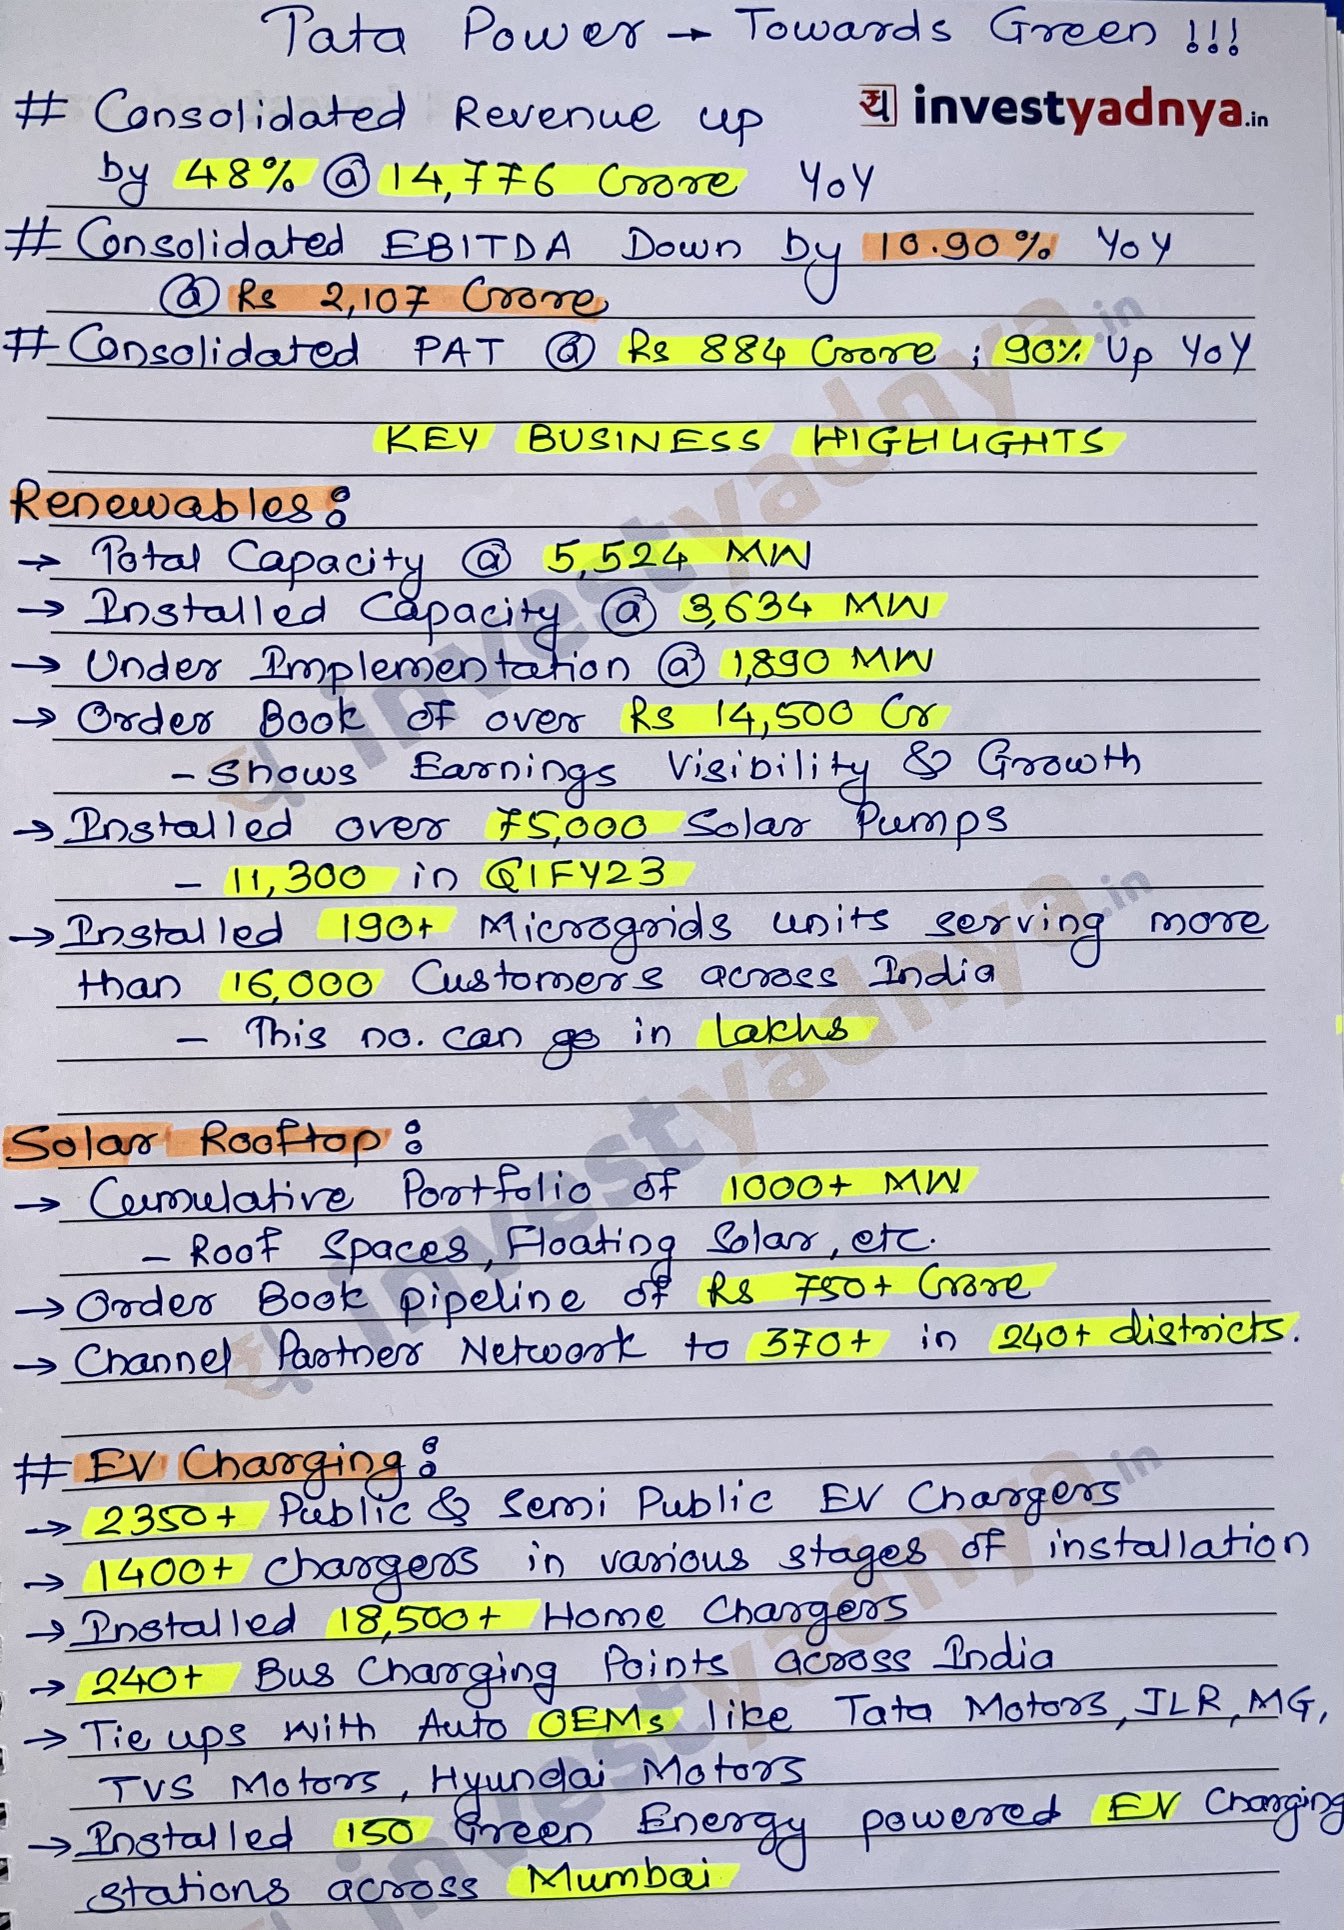 Tata Power → Towards Green !!!
य investyadnya.in
# Consolidated Revenue up
by 48% @ 14,776 Crore YoY
# Consolidated EBITDA Down by 10.90% YoY
@ Rs 2,107 Crore
# Consolidated PAT @ Rs 884 Crore ; 90% Up YoY
KEY BUSINESS HIGHLIGHTS
Renewables:
→ Total Capacity @ 5,524 MW
→ Installed Capacity @ 3,634 MW
→ Under Implementation @ 1,890 MW
→ Order Book of over Rs 14,500 Cr
- Shows Earnings Visibility & Growth
→ Installed over 75,000 Solar Pumps
- 11,300 in Q1FY23
→ Installed 190+ Microgrids units serving more
than 16,000 Customers across India
- This no. can go in Lakhs
Solar Rooftop:
→ Cumulative Portfolio of 1000+ MW
- Roof Spaces, Floating Solar, etc.
→ Order Book pipeline of Rs 750+ Crore
→ Channel Partner Network to 370+ in 240+ districts.
# EV Charging:
→ 2350+ Public & Semi Public EV Chargers
→ 1400+ chargers in various stages of installation
→ Installed 18,500+ Home Chargers
→ 240+ Bus Charging Points across India
→ Tie ups with Auto OEMs like Tata Motors, JLR, MG,
TVS Motors, Hyundai Motors
→ Installed 150 Green Energy powered EV Charging
stations across Mumbai
investyadnya.in
investyadnya.in
investyadnya.in